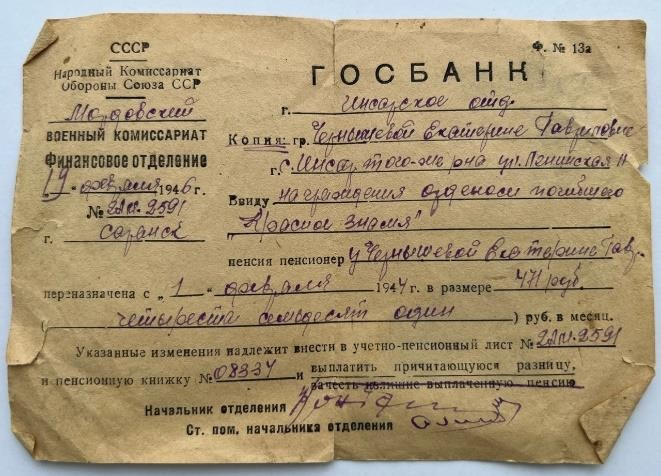 СССР
Народный Комиссариат
Обороны Союза ССР
Мордовский
ВОЕННЫЙ КОМИССАРИАТ
ФИНАНСОВОЕ ОТДЕЛЕНИЕ
"19" февраля 1946 г.
№ 2/м. 2591
г. Саранск
Ф. № 13а
ГОСБАНК
г. Инсарское отд.
Копия: гр. Чернышевой Екатерине Гавриловне
г. с. Инсар того-же р-на ул. Ленинская 11
Ввиду награждения орденом погибшего
"Красное Знамя"
пенсия пенсионер у Чернышевой Екатерине Гавр.
переназначена с „ 1 " февраля 1944 г. в размере 471 руб
( четыреста семьдесят один ) руб. в месяц.
Указанные изменения надлежит внести в учетно-пенсионный лист № 2/м. 2591
и пенсионную книжку № 08337 и выплатить причитающуюся разницу,
зачесть излишне выплаченную пенсию
Начальник отделения
Ст. пом. начальника отделения